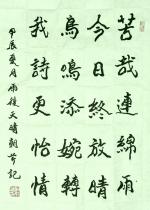 苦哉連綿雨
今日終放晴
鳥鳴添婉轉
我詩更怡情
甲辰夏月雨後天晴朝芳記